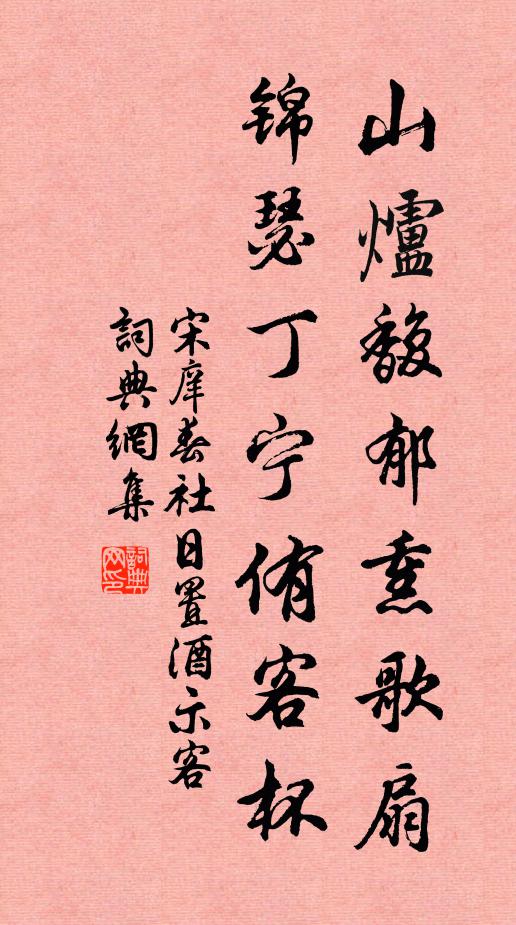 山爐馥郁熏歌扇
锦瑟丁宁侑客杯
宋庠春社日置酒示客
詞典網集
詞典网印